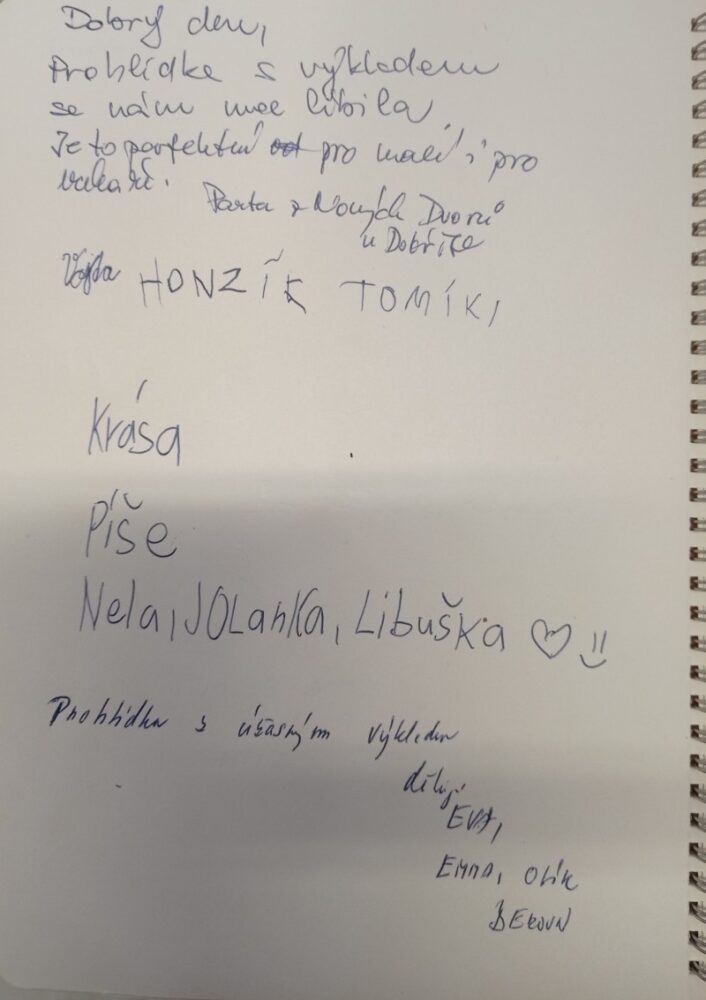 Dobrý den,
Prohlídka s výkladem
se nám moc líbila.
Je to perfektní pro malé i pro
Parta z Nových Dvorů
u Dobříše
Vojta HONZÍK TOMÍK,
Krása
Píše
Nela, JOLANKA, LibušKa ♡
Prohlídka s úžasným výkladem
děkují
EVA,
EMMA, OLÍK
BEROUN